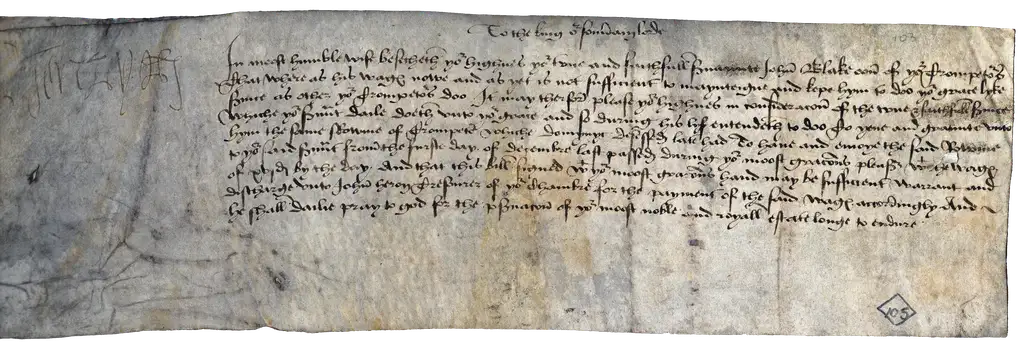 To the king o{ur} souv{er}ain lorde
In moost humble wise besecheth yo{ur} highnes yo{ur} true and faithfull s{er}v{a}unte John Blake oon of yo{ur} Trompett{es}
That where as his wag{es} nowe and as yet is not sufficient to mayntaigne and kepe hym to doo yo{ur} grace lyke
s{er}vice as other yo{ur} Trompet{es} doo It may therfor please yo{ur} highnes in consideracon of the true & faithfull s{er}vice
whiche yo{ur} s{er}v{a}nt daile doeth unto yo{ur} grace and so during his lyf entendeth to doo To yeve and graunte unto
hym the same Rowme of Trompett whiche domynyc decessed late had To have and enioye the said Rowme
to yo{ur} said s{er}v{a}nt from the furste day of decembre last passed during yo{ur} moost gracious pleas{ur} w{i}t{h} the wag{es}
of xvj d by the day And that this bill signed w{i}t{h} yo{ur} moost gracious hand may be sufficient warrant and
discharge unto John heron Tresourer of yo{ur} Chambre for the payment of the said wag{es} accordingly And
he shall dailie pray to god for the p{re}s{er}vacon of yo{ur} moost noble and royall estate longe to endure
105